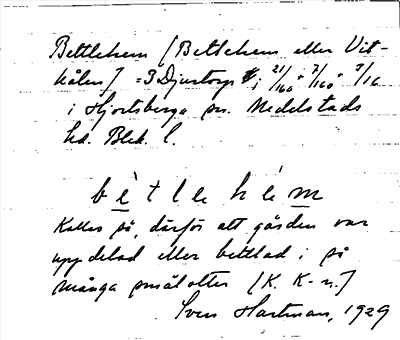 Betlehem [Betlehem eller Vit-
kålen] = 3 Djurtorp 21/160, 7/160, 7/16
i Hjortsberga sn. Medelstads
hd. Blek. l.
bètlehém
Kallas så, därför att gården var
uppdelad eller bettlad i så
många smålotter [K. K-n.]
Sven Hartman, 1929